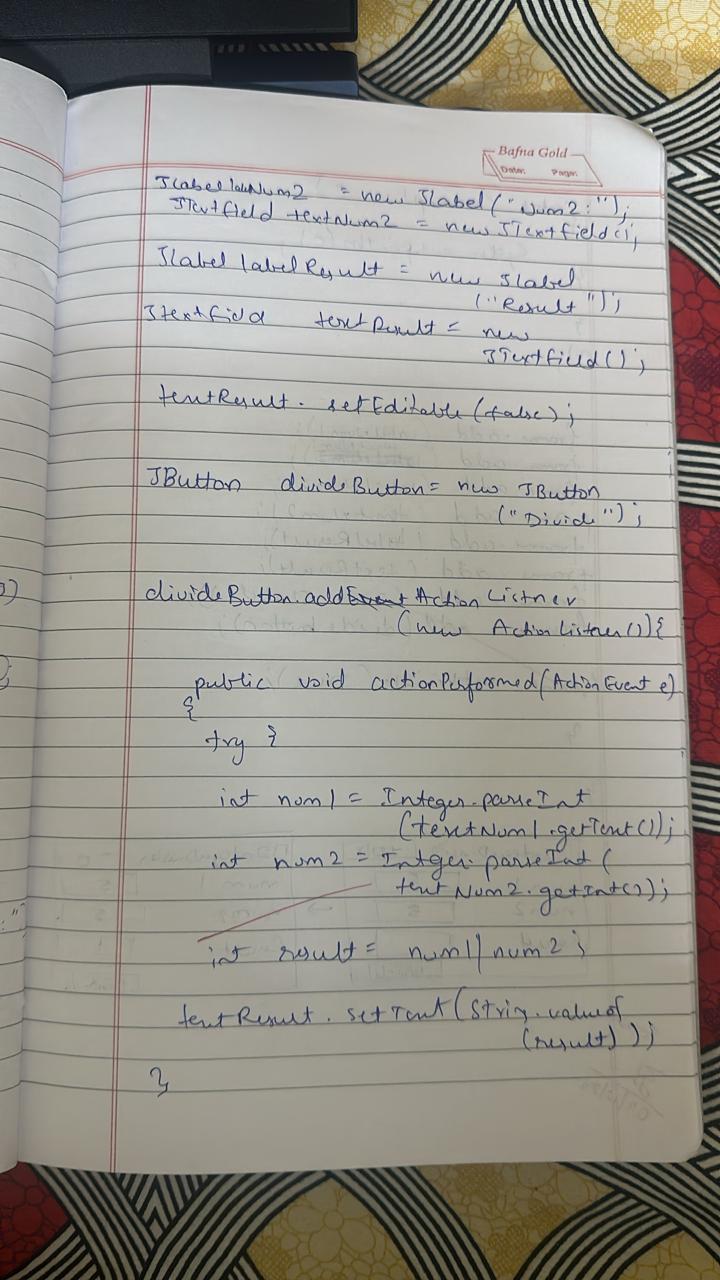 Bafna Gold
Date: Page:
JLabel labNum2 = new JLabel("Num2:");
JTextField textNum2 = new JTextField();
JLabel labelResult = new JLabel
("Result");
JTextField textResult = new
JTextField();
textResult. setEditable(false);
JButton divideButton = new JButton
("Divide");
divideButton.addEvent Action Listner
(new ActionListner(){
public void actionPerformed(ActionEvent e)
{
try {
int num1 = Integer.parseInt
(textNum1.getText());
int num2 = Intger.parseInt(
textNum2.getInt());
int result = num1//num2;
textResult. setText(String.valueof
(result));
}